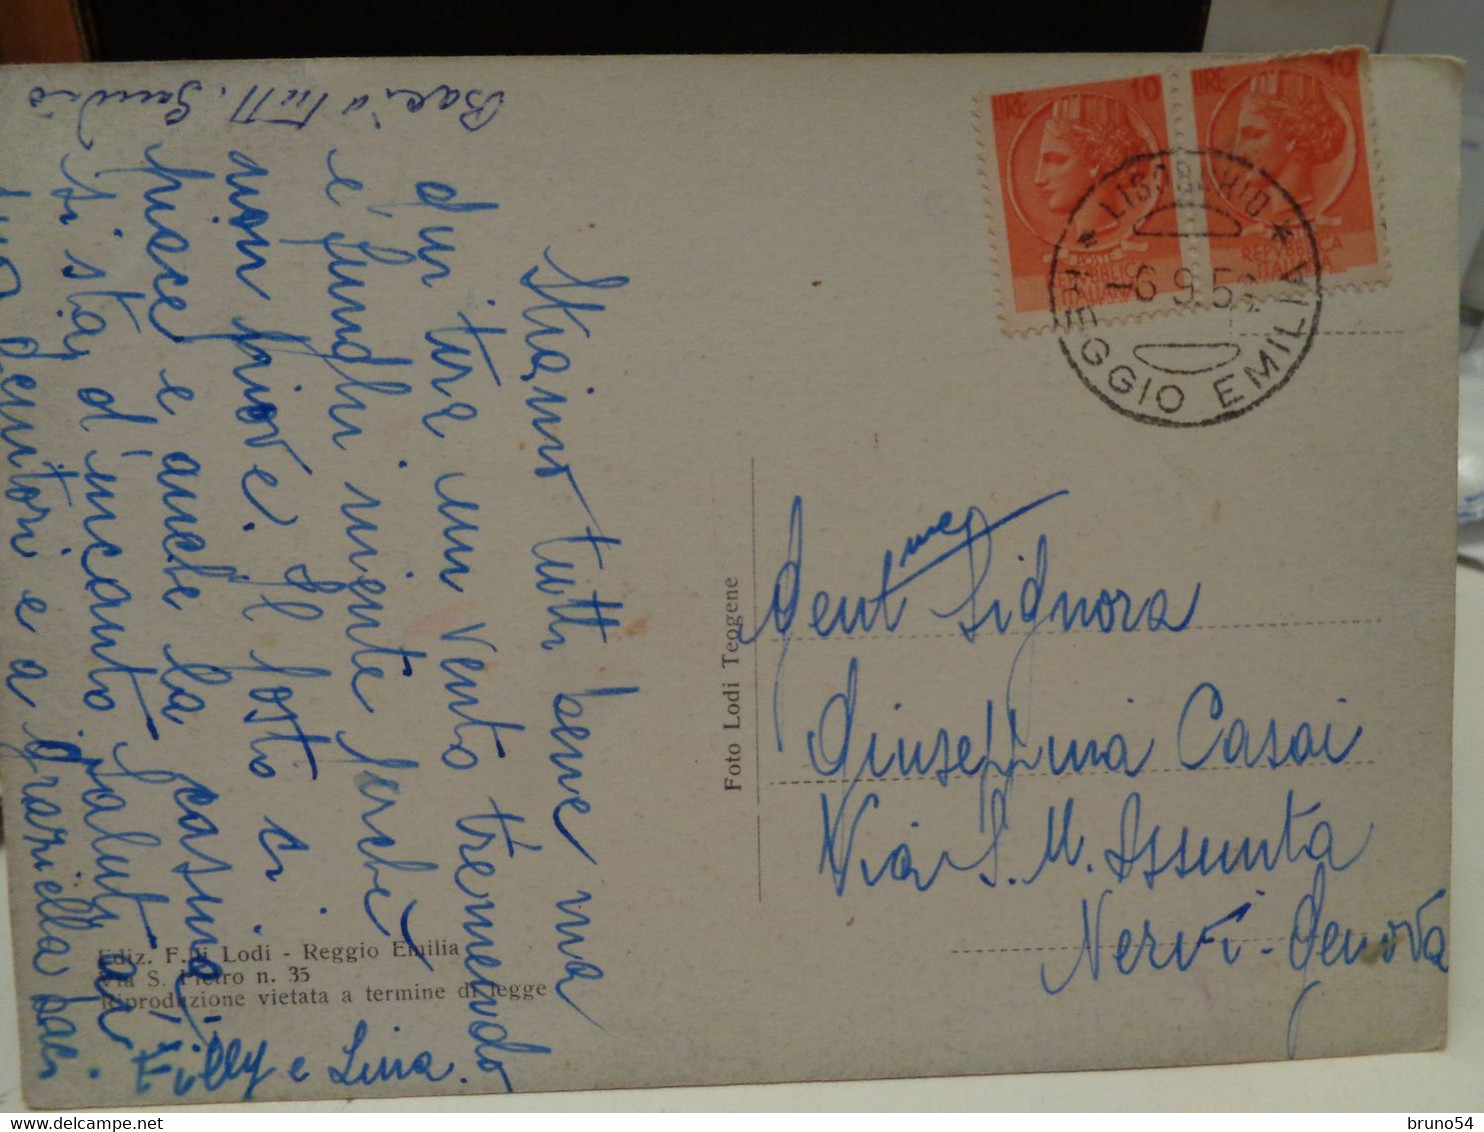 Stiamo tutti bene ma
qui tira un vento tremendo
e funghi niente perchè
non piove. Il posto ci
piace e anche la casina,
si sta, d'incanto saluti ai
genitori e a Graziella baci
Lilly e Lina.
Baci a tutti. Sandro
LIRE 10
LIRE 10
REPUBBLICA
ITALIANA
REPUBBLICA
ITALIANA
-6.9.5
REGGIO EMILIA
Gent.ma Signora
Giuseppina Casai
Via S. M. Assunta
Nervi - Genova
Foto Lodi Teogene
Ediz. F.lli Lodi - Reggio Emilia
Via S. Pietro n. 35
Riproduzione vietata a termine di legge
bruno54